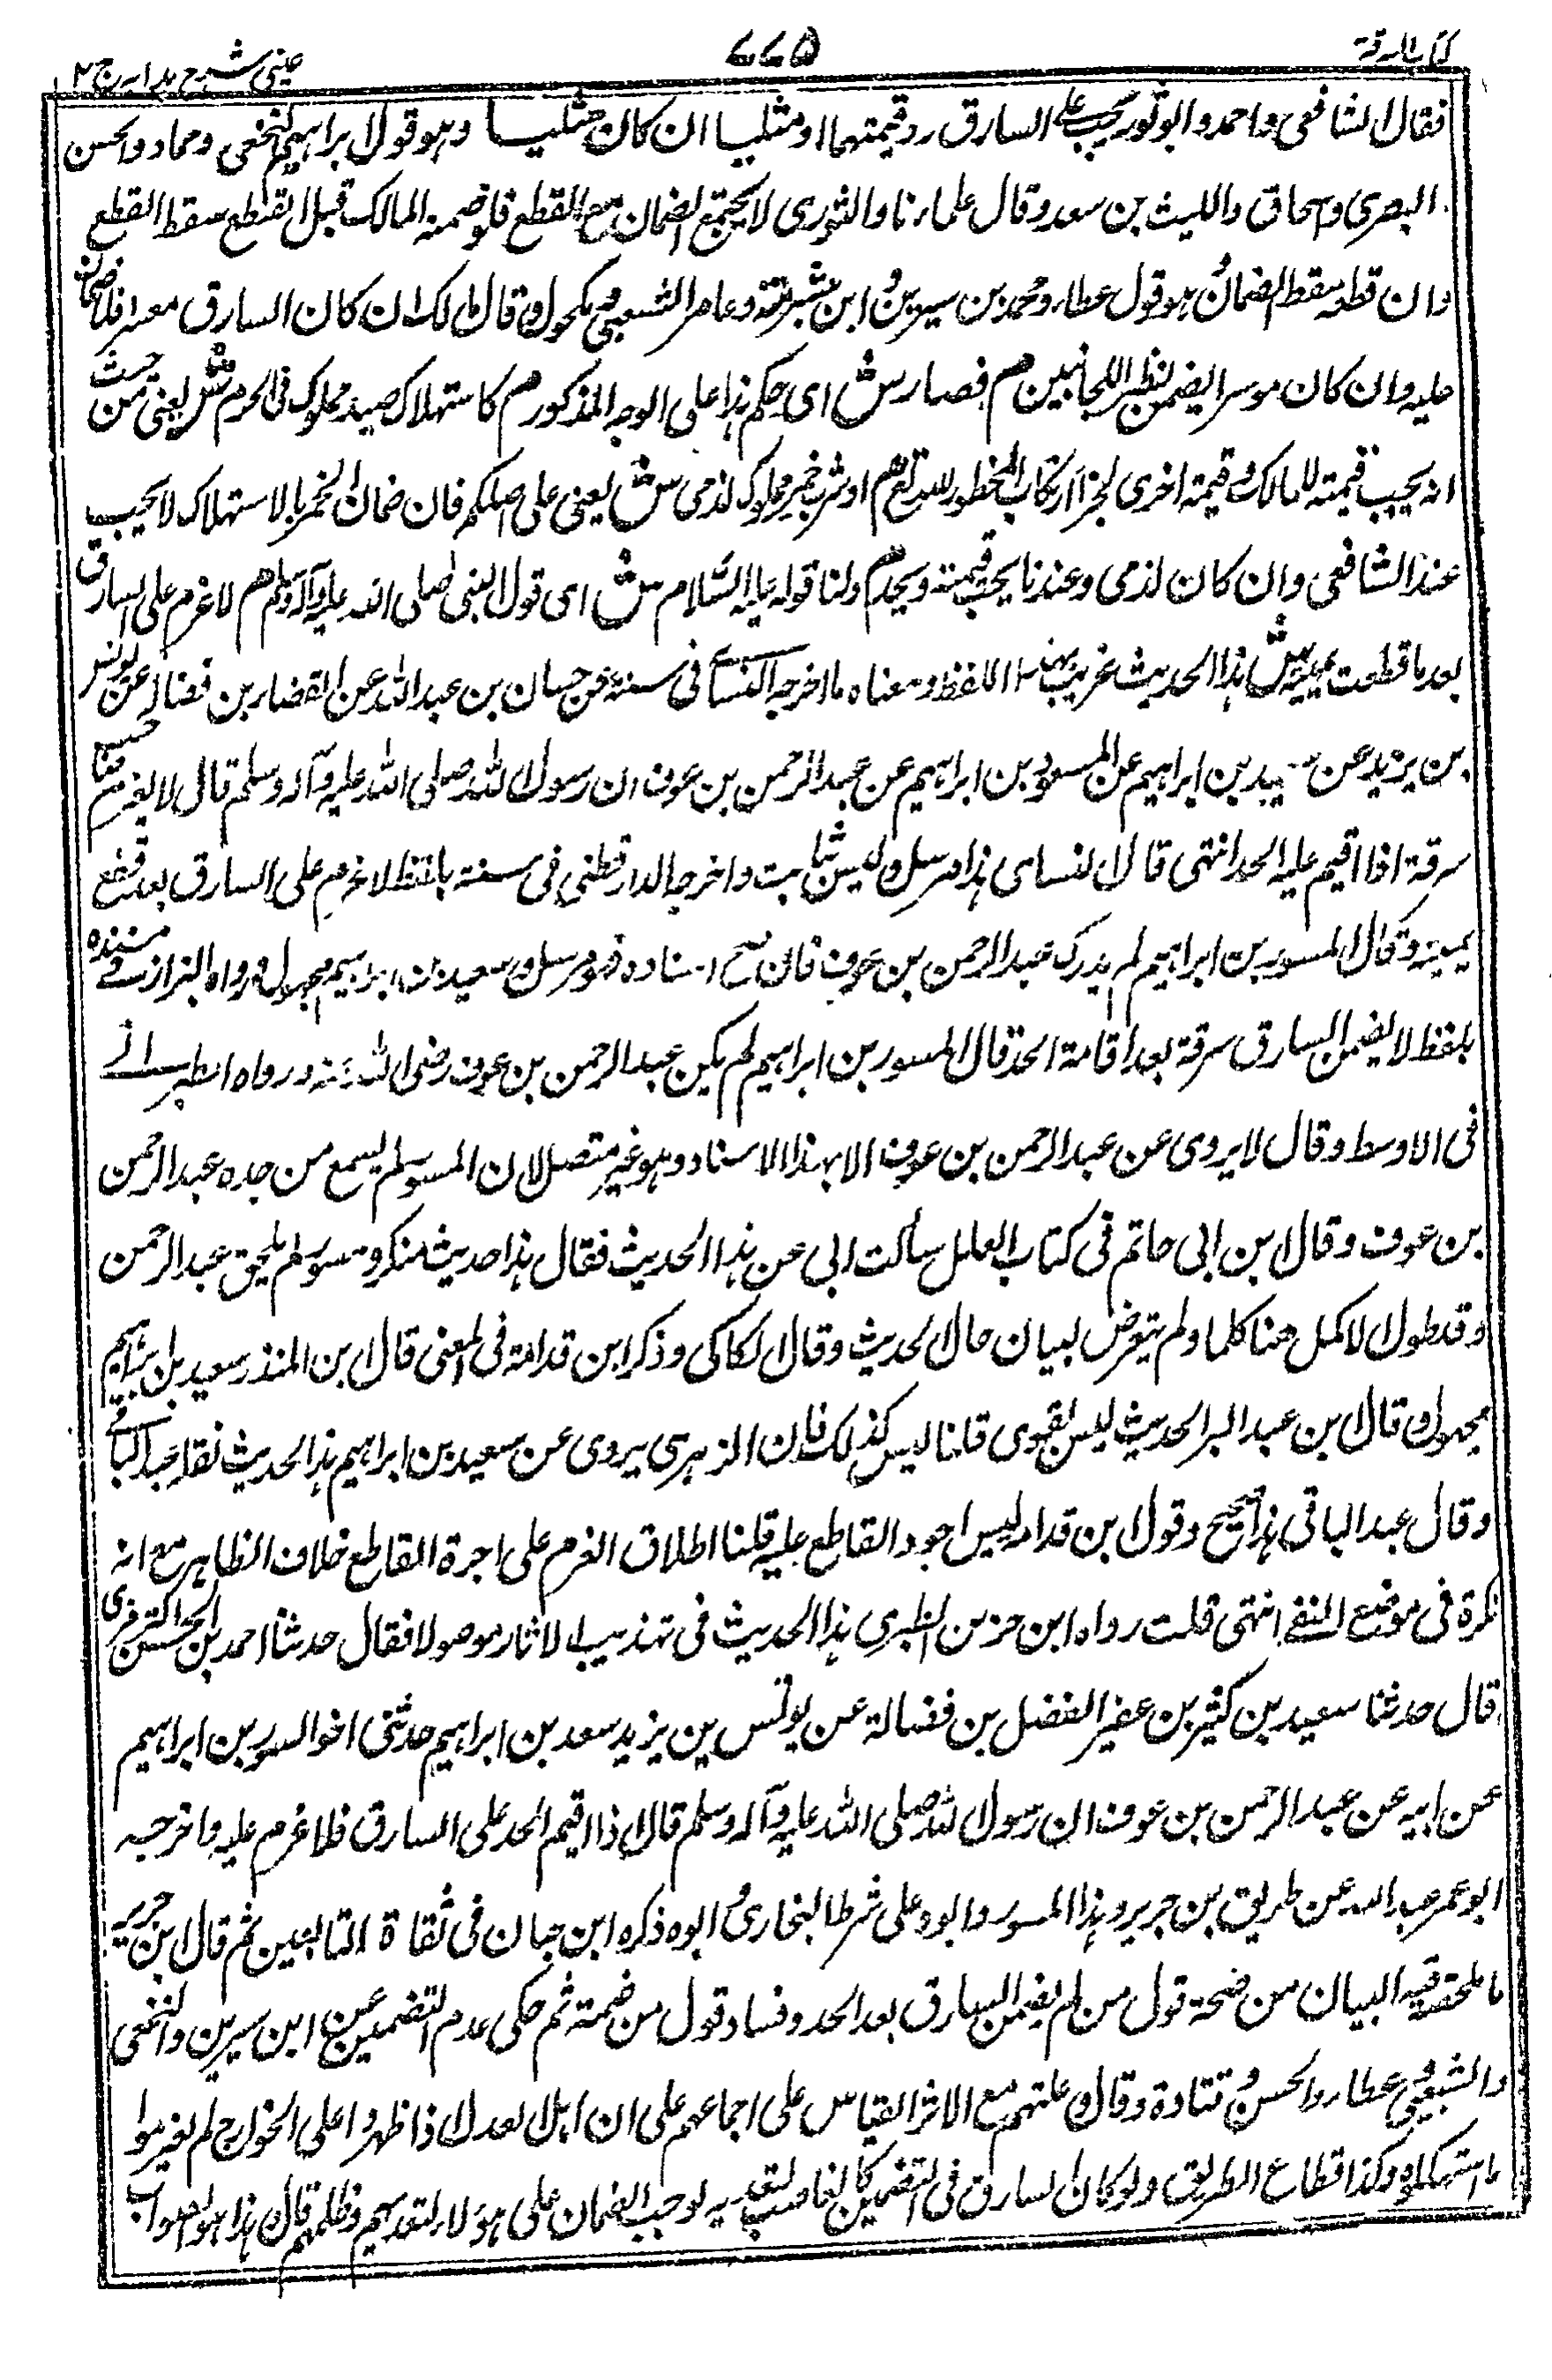 كتاب السرقة
٧٧٥
عينى شرح هدايه ج ٢
فقال الشافعى واحمد وابو ثور يجب على السارق رد قيمتهما او مثليا ان كان مثليا وهو قول ابراهيم النخعى وحماد والحسن
البصرى واسحاق والليث بن سعد وقال علماءنا والثورى لا يجتمع الضمان مع القطع فلو ضمنه المالك قبل القطع سقط القطع
وان قطع سقط الضمان وهو قول عطاء ومحمد بن سيرين وابن شبرمة وعامر الشعبى ومكحول وقال مالك ان كان السارق معسرا فلا ضمان
عليه وان كان موسرا يضمن نظرا للجانبين م فصار ش اى حكم هذا على الوجه المذكور م كاستهلاك صيد مملوك فى الحرم ش يعنى من حيث
انه يجب قيمته للمالك وقيمته اخرى لجزاء ارتكاب المحظور لله تعالى م او شرب خمر مملوك لذمى ش يعنى على اصلكم فان ضمان الخمر بالاستهلاك لا يجب
عند الشافعى وان كان لذمى وعندنا يجب قيمته ويحد م ولنا قوله عليه السلام ش اى قول النبى صلى الله عليه وآله وسلم م لا غرم على السارق
بعد ما قطعت يمينه ش هذا الحديث غريب بهذا اللفظ ومعناه ما اخرجه النسائى فى سننه عن حسان بن عبد الله عن القضار بن فضالة عن يونس
بن يزيد عن سعيد بن ابراهيم عن المسور بن ابراهيم عن عبد الرحمن بن عوف ان رسول الله صلى الله عليه وآله وسلم قال لا يغرم صاحب
سرقة اذا اقيم عليه الحد انتهى قال النسائى هذا مرسل وليس بثابت واخرجه الدار قطنى فى سننه بلفظ لا غرم على السارق بعد قطع
يمينه وقال المسور بن ابراهيم لم يدرك عبد الرحمن بن عوف فان صح اسناده فهو مرسل وسعيد بن ابراهيم مجهول ورواه البزار فى مسنده
بلفظ لا يضمن السارق سرقة بعد اقامة الحد قال المسور بن ابراهيم لم يكن عبد الرحمن بن عوف رضى الله عنه ورواه الطبرانى
فى الاوسط وقال لا يروى عن عبد الرحمن بن عوف الا بهذا الاسناد وهو غير متصل لان المسور لم يسمع من جده عبد الرحمن
بن عوف وقال ابن ابى حاتم فى كتاب العلل سألت ابى عن هذا الحديث فقال هذا حديث منكر ومسور لم يلحق عبد الرحمن
وقد طول الاكمل هنا كلاما ولم يتعرض لبيان حال الحديث وقال الكاكى وذكر ابن قدامة فى المغنى قال ابن المنذر سعيد بن ابراهيم
مجهول وقال ابن عبد البر الحديث ليس بقوى قلنا ليس كذلك فان الزهرى يروى عن سعيد بن ابراهيم هذا الحديث نقله عبد الباقى
وقال عبد الباقى هذا صحيح وقول ابن قدامه ليس اجود القاطع عليه قلنا اطلاق الغرم على اجرة القاطع خلاف الظاهر مع انه
نكرة فى موضع النفى انتهى قلت رواه ابن حزمن الطبرى هذا الحديث فى تهذيب الاثار موصولا فقال حدثنا احمد بن الحسن الترمذى
قال حدثنا سعيد بن كثير بن عفير الفضل بن فضالة عن يونس بن يزيد سعد بن ابراهيم حدثنى اخو المسور بن ابراهيم
عن ابيه عن عبد الرحمن بن عوف ان رسول الله صلى الله عليه وآله وسلم قال اذا اقيم الحد على السارق فلا غرم عليه واخرجه
ابو عمر عبد الله عن طريق بن جرير وهذا المسور وابوه على شرط البخارى وابوه ذكره ابن حبان فى ثقاة التابعين ثم قال ابن جرير
ما ملحقه فيه البيان من صحة قول من لم يضمن السارق بعد الحد وفساد قول من ضمنه ثم حكى عدم التضمين عن ابن سيرين والنخعى
والشعبى وعطاء والحسن وقتادة وقال وعلتهم مع الاثر القياس على اجماعهم على ان اهل العدل اذا ظهروا على الخوارج لم يغرموا
ما استهلكوه وكذا قطاع الطريق ولو كان السارق فى التضمين كالغاصب لتعديه لوجب الضمان على هؤلاء لتعديهم وظلمهم قال هذا هو الصواب